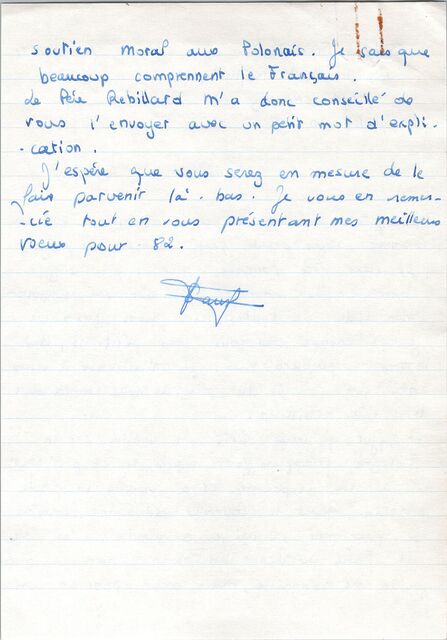 soutien moral aux Polonais. Je sais que
beaucoup comprennent le Français.
Le Père Rebillard m'a donc conseillé de
vous l'envoyer avec un petit mot d'expli-
-cation.
J'espère que vous serez en mesure de le
faire parvenir là-bas. Je vous en remer-
-cie tout en vous présentant mes meilleurs
voeux pour 82.